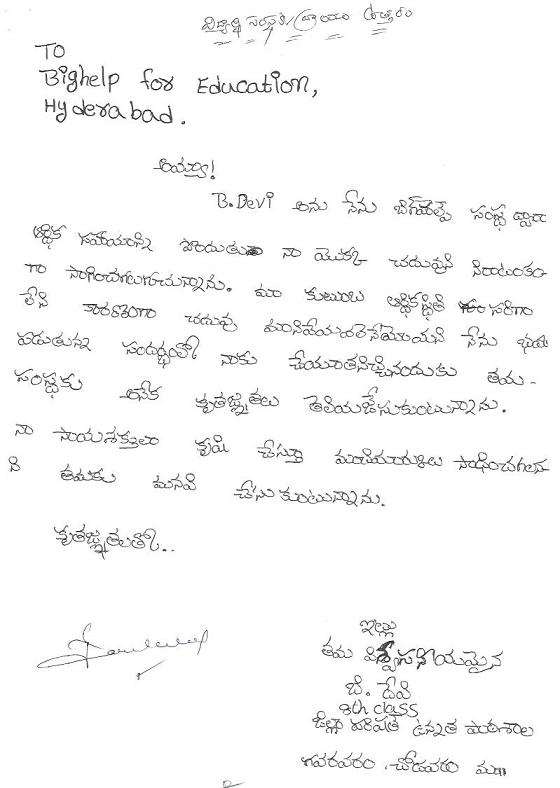 విద్యార్థి సంస్థకు వ్రాయు ఉత్తరం
To
Bighelp for Education,
Hyderabad.
అయ్యా!
B.Devi అను నేను బిగ్‌హెల్ప్ సంస్థ ద్వారా
ఆర్థిక సహాయాన్ని పొందుతూ నా యొక్క చదువుని నిరాటంకం
గా సాగించగలుగుచున్నాను. మా కుటుంబ ఆర్థికస్థితి సరిగా
లేని కారణంగా చదువు మానివేయవలెనేమోయని నేను భయ
పడుతున్న సందర్భంలో నాకు చేయూతనిచ్చినందుకు తమ -
సంస్థకు అనేక కృతజ్ఞతలు తెలియజేసుకుంటున్నాను.
నా సాయశక్తులా కృషి చేస్తూ మంచిమార్కులు సాధించగలన
ని తమకు మనవి చేసుకుంటున్నాను.
కృతజ్ఞతలతో..
ఇట్లు
తమ విశ్వసనీయమైన
బి. దేవి
8th class
జిల్లా పరిషత్ ఉన్నత పాఠశాల
గవరవరం, చోడవరం మం